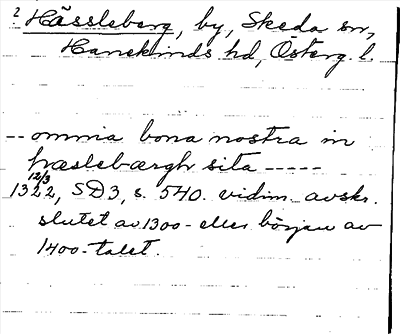 ? Hässleberg, by, Skeda sn,
Hanekinds hd, Österg. l.
-- omnia bona nostra in
hæslebærgh sita -----
12/3
1322, SD3, s. 540. vidim. avskr.
slutet av 1300- eller början av
1400-talet.